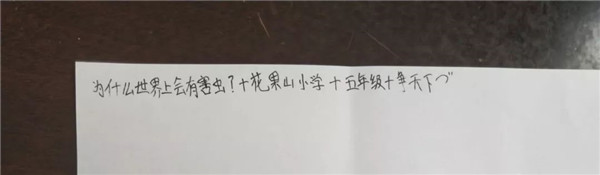 为什么世界上会有害虫?+花果山小学+五年级+争天下